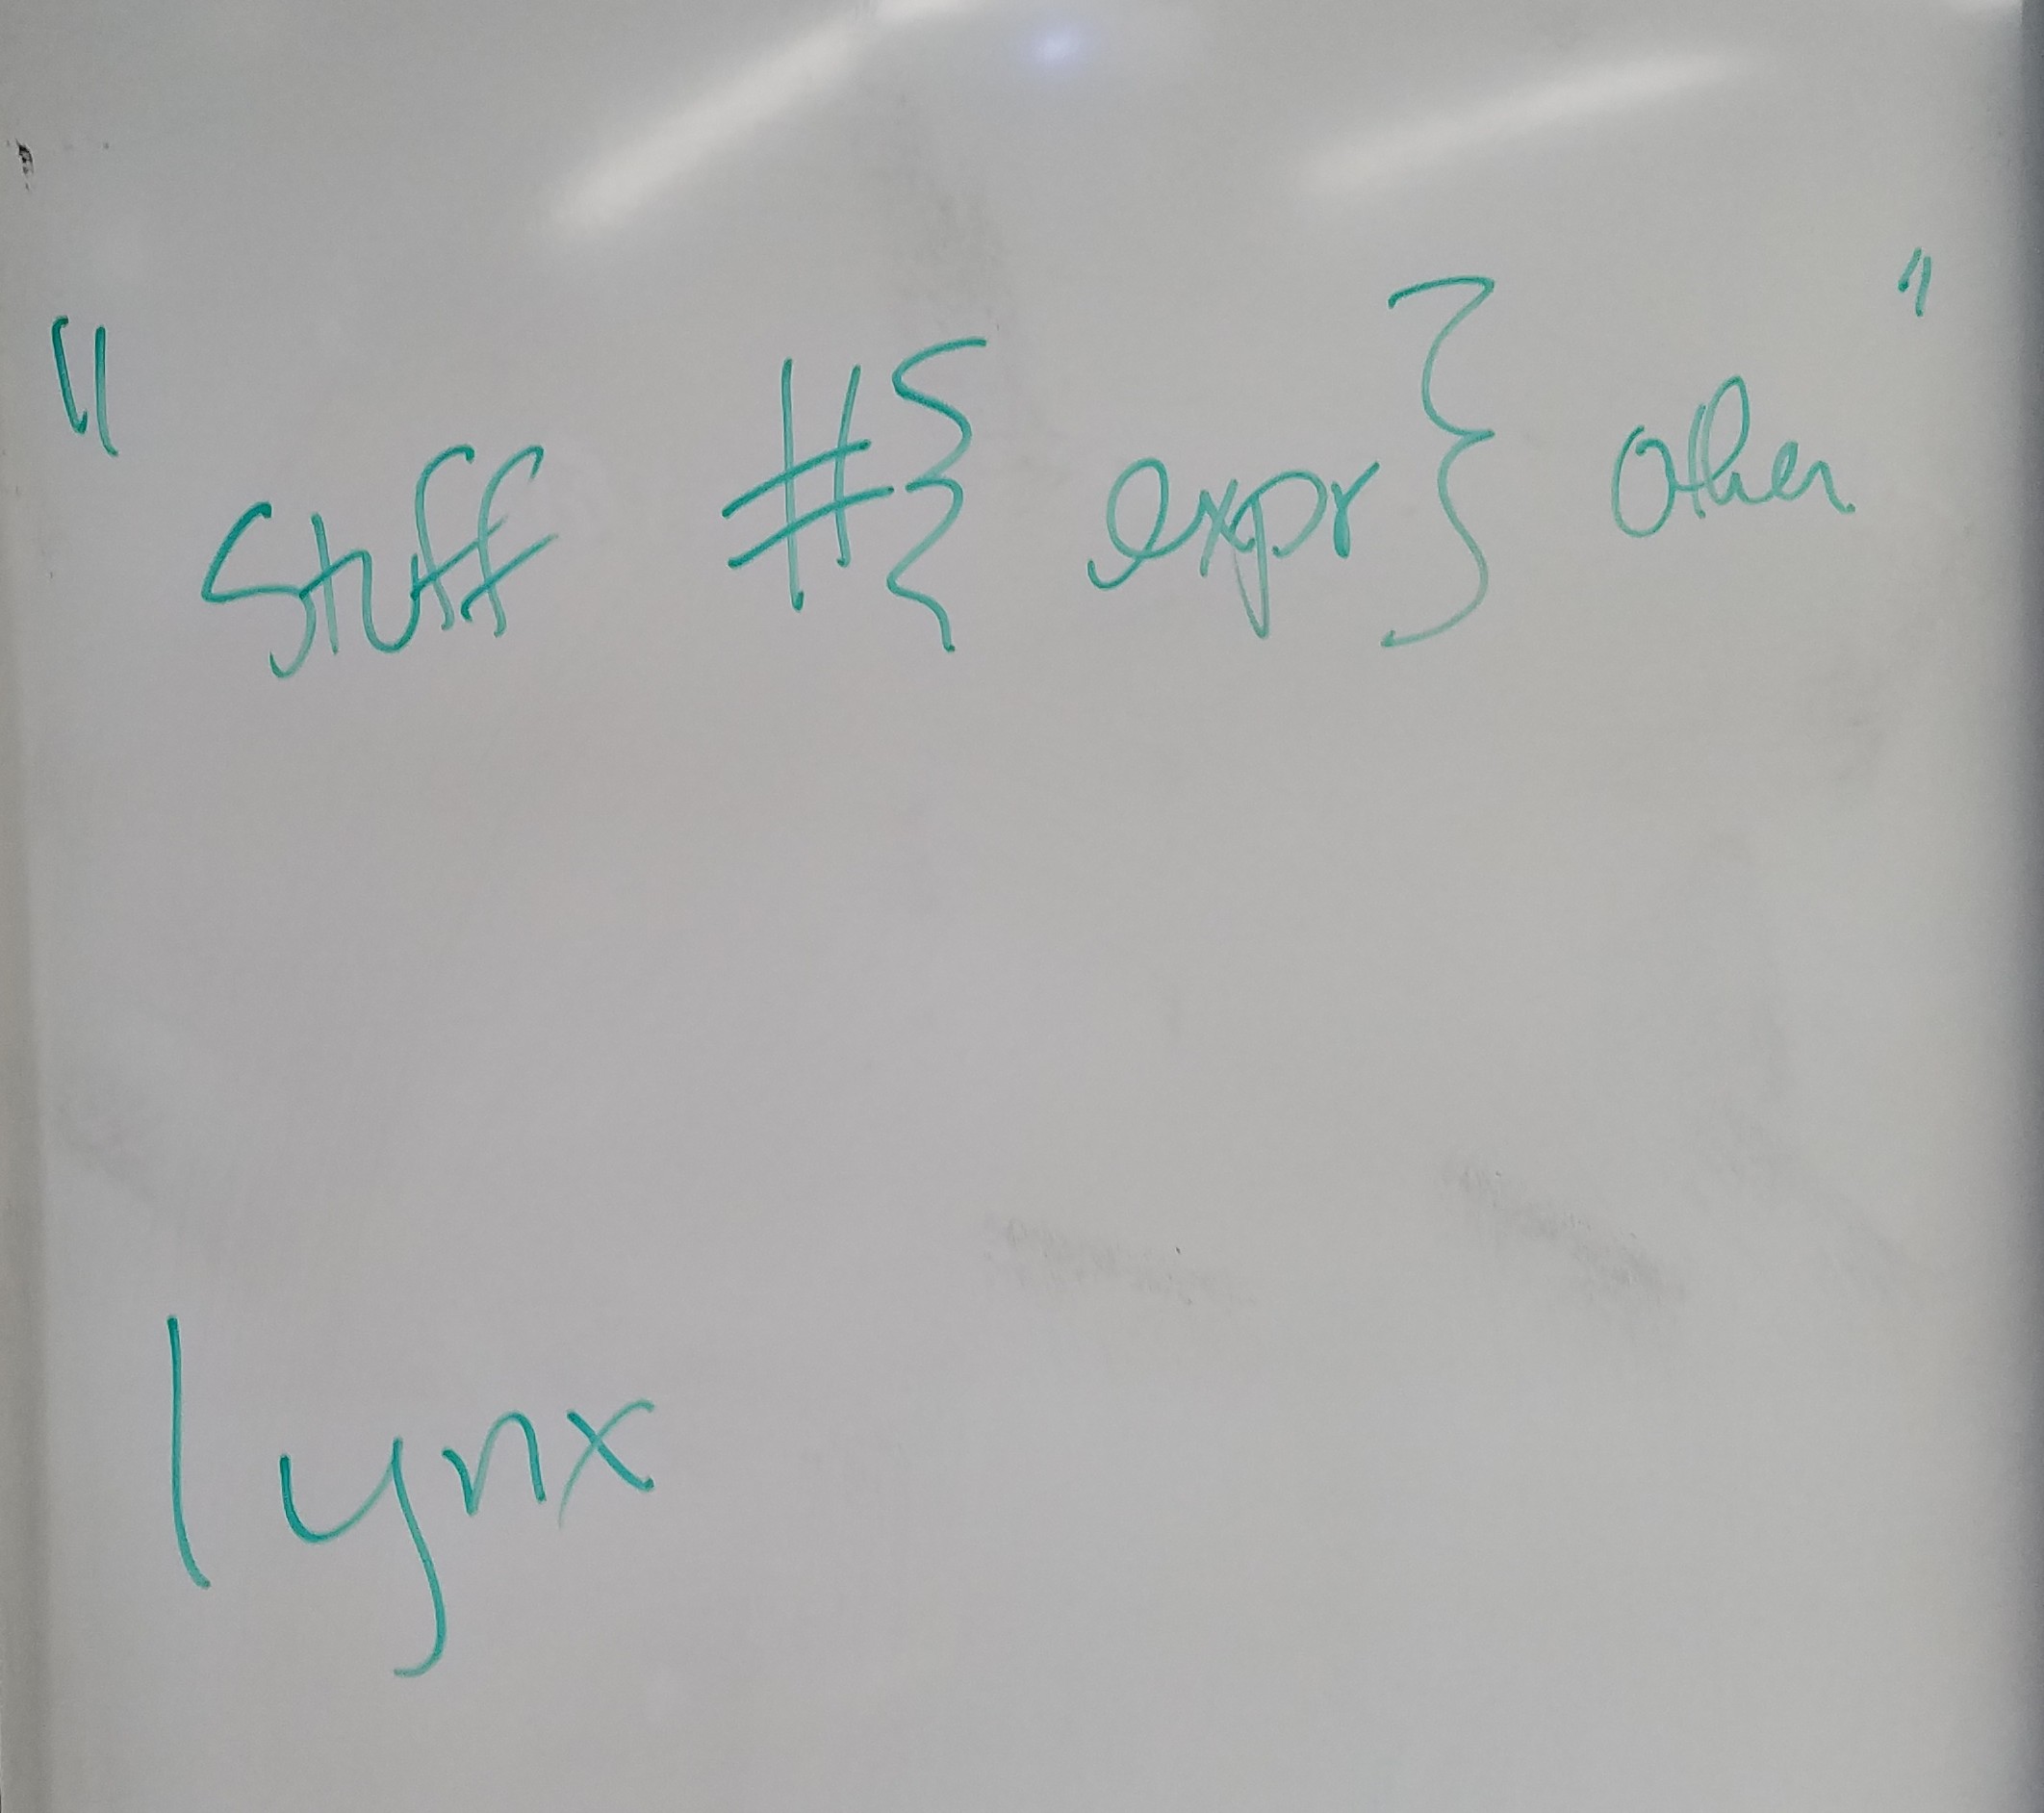 "stuff #{ expr} other"
lynx